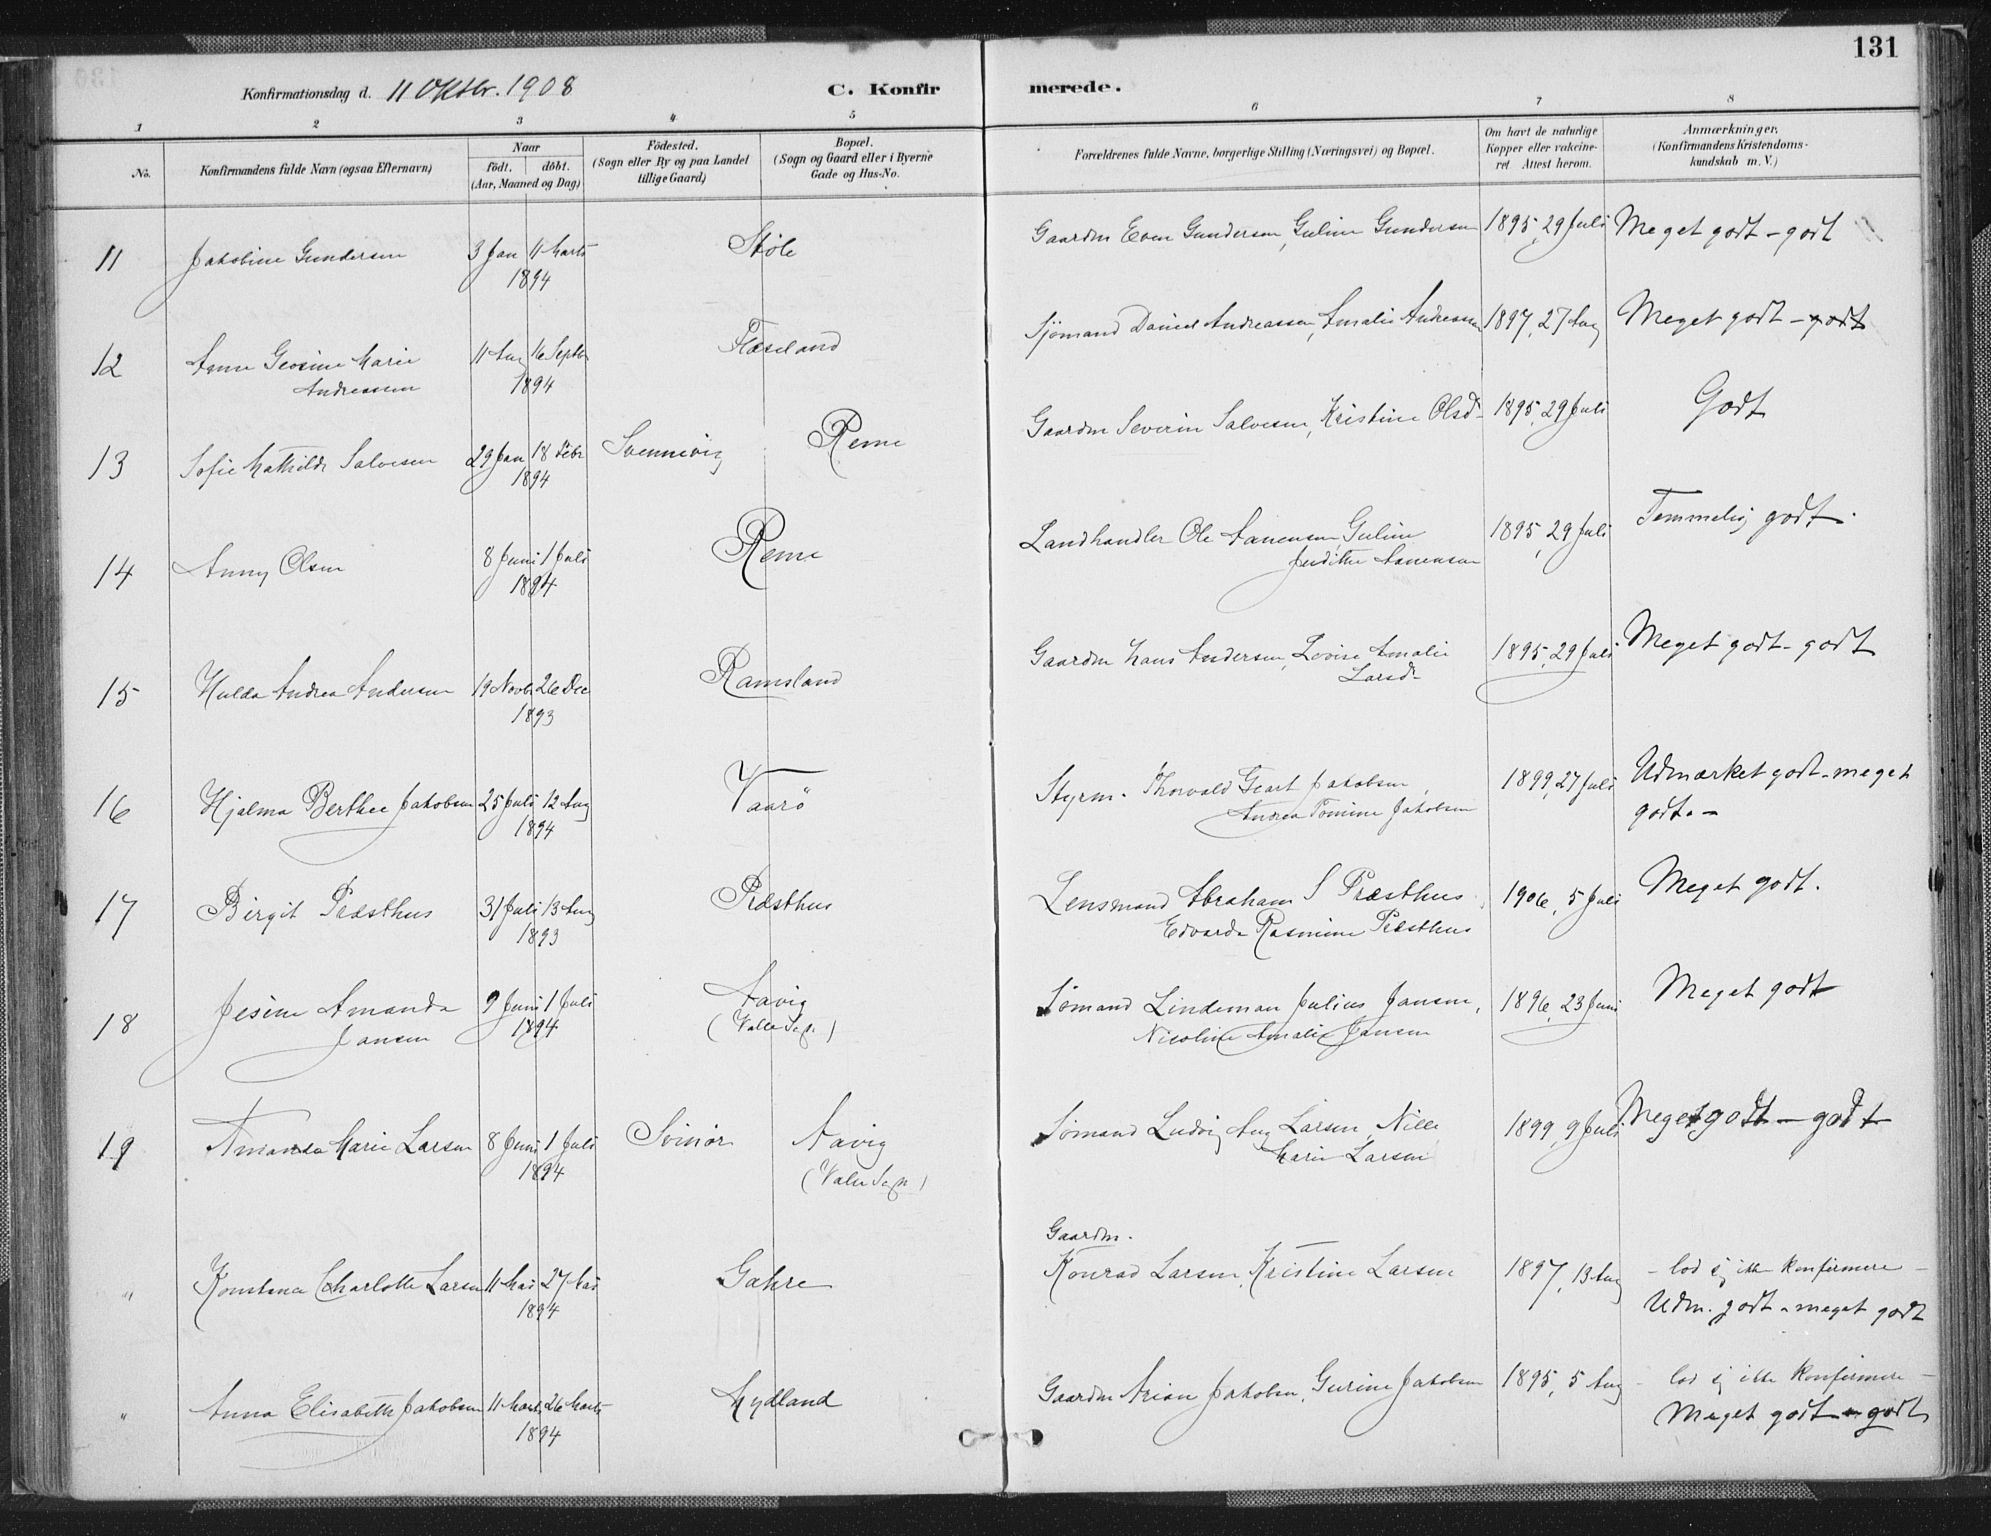 131
Konfirmationsdag d. 11 Oktbr. 1908
C. Konfirmerede.
1 2 3 4 5 6 7 8
No.
Konfirmandens fulde Navn (ogsaa Efternavn)
Naar
födt. döbt.
(Aar, Maaned og Dag)
Födested.
(Sogn eller By og paa Landet
tillige Gaard)
Bopæl.
(Sogn og Gaard eller i Byerne
Gade og Hus-No.
Forældrenes fulde Navne, borgerlige Stilling (Næringsvei) og Bopæl.
Om havt de naturlige
Kopper eller vakcine-
ret Attest herom.
Anmærkninger.
(Konfirmandens Kristendoms-
kundskab m. V.)
11 Jakobine Gundersen 3 Jan 11 Marts Støle Gaardm Even Gundersen, Guline Gundersen 1895, 29 Juli Meget godt - godt
1894
12 Anne Geosine Marie 11 Aug 16 Septbr Flæseland Sjömand Daniel Andreassen, Amalie Andreassen 1897, 27 Aug Meget godt - godt
Andreassen 1894
13 Sofie Mathilde Salvesen 29 Jan 18 Febr Svennevig Reme Gaardm Severin Salvesen, Kristine Olsd- 1895, 29 Juli Godt
1894
14 Anny Olsen 8 Juni 1 Juli Reme Landhandler Ole Aanensen, Guline 1895, 29 Juli Temmelig godt.
1894 Judithe Aanensen
15 Hulda Andrea Andersen 19 Novb 26 Dec Ramsland Gaardm Hans Andersen, Lovise Amalie 1895, 29 Juli Meget godt - godt
1893 Larsd-
16 Hjalma Berthee Jakobsen 25 Juli 12 Aug Vaarø Styrm. Thorvald Geart Jakobsen, 1899, 27 Juli Udmærket godt - meget
1894 Andrea Tomine Jakobsen godt. -
17 Birgit Præsthus 31 Juli 13 Aug Præsthus Lensmand Abraham S Præsthus, 1906, 5 Juli Meget godt.
1893 Edvarda Rasmine Præsthus
18 Jesine Amanda 9 Juni 1 Juli Aavig Sømand Lindeman Julius Jansen, 1896, 23 Juni Meget godt
Jansen 1894 (Valle Sogn) Nicoline Amalie Jansen
19 Amanda Marie Larsen 8 Juni 1 Juli Svinør Aavig Sømand Ludvig Aug Larsen, Nille 1899, 9 Juli Meget godt - godt
1894 (Valle Sogn) Marie Larsen
Gaardm.
" Konstance Charlotte Larsen 11 Mai 27 Mai Gahre Konrad Larsen, Kristine Larsen 1897, 13 Aug - lod sj ikke konfirmere -
1894 Udm. godt - meget godt
" Anna Elisabeth Jakobsen 11 Marts 26 Marts Hydland Gaardm Arian Jakobsen, Gurine Jakobsen 1895, 5 Aug - lod sj ikke konfirmere -
1894 Meget godt - godt